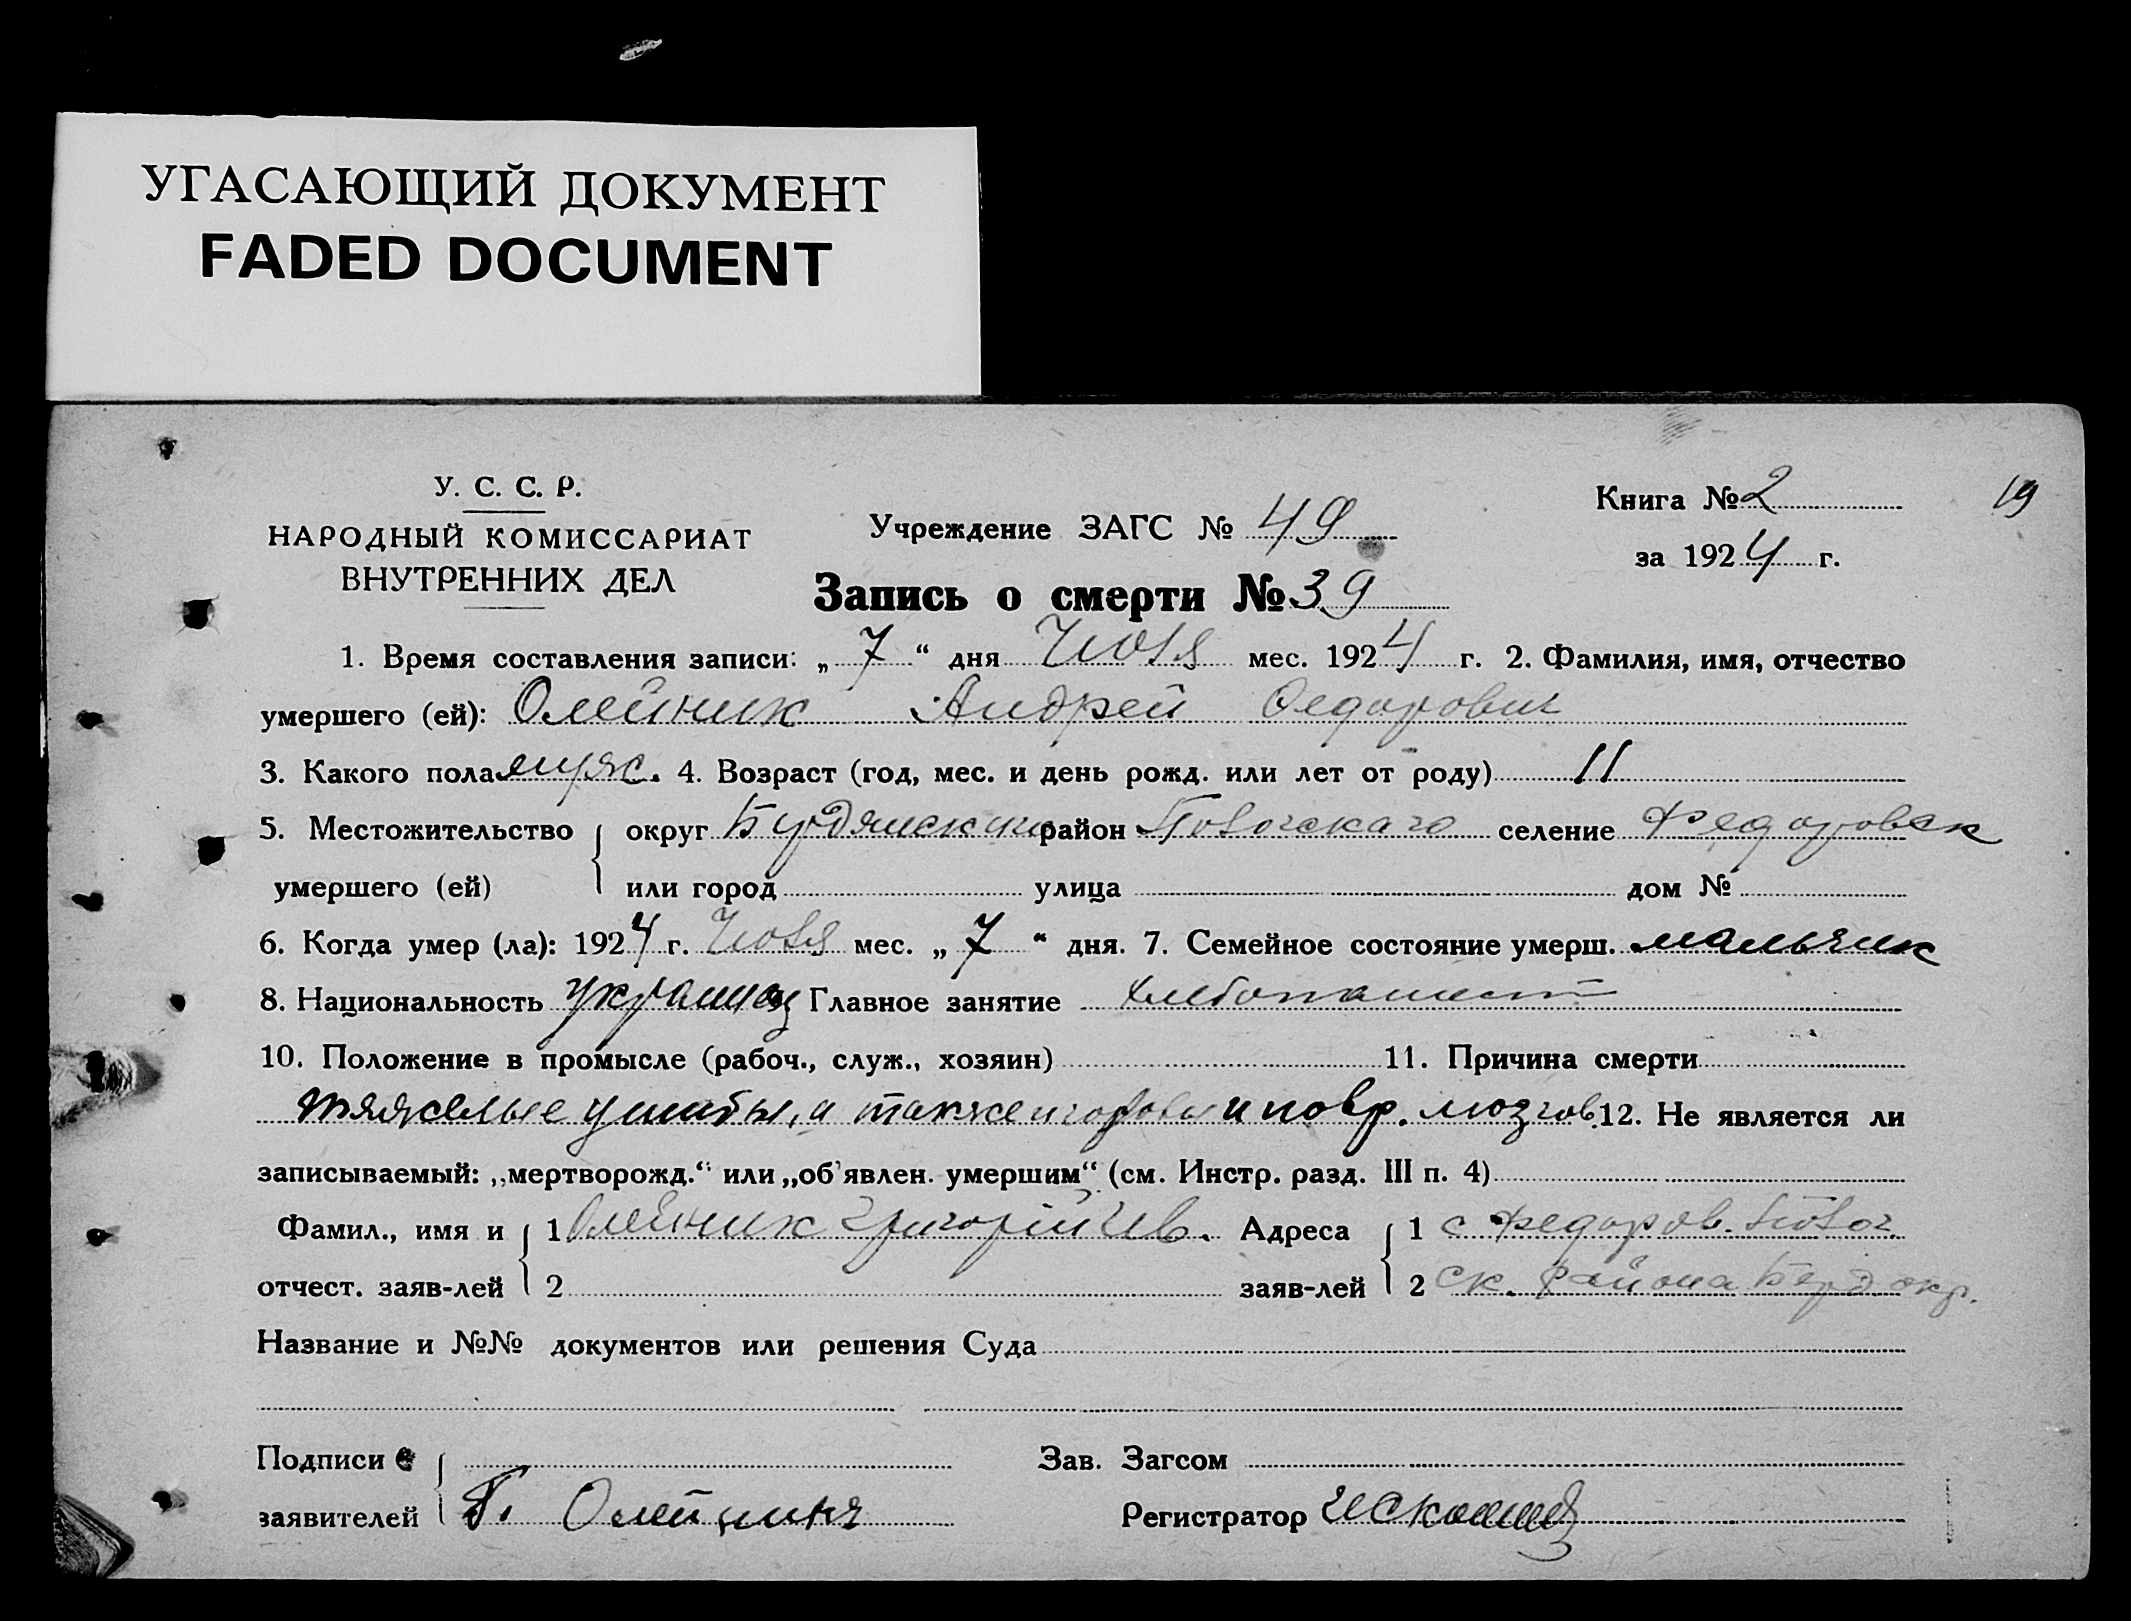 УГАСАЮЩИЙ ДОКУМЕНТ
FADED DOCUMENT
У. С. С. Р.
НАРОДНЫЙ КОМИССАРИАТ
ВНУТРЕННИХ ДЕЛ
Учреждение ЗАГС № 49
Запись о смерти № 39
Книга № 2
19
за 1924 г.
1. Время составления записи: „7“ дня мес. 1924 г. 2. Фамилия, имя, отчество
умершего (ей): Олейник Андрей Федорович
3. Какого пола муж. 4. Возраст (год, мес. и день рожд. или лет от роду) 11
5. Местожительство округ район селение
умершего (ей) или город улица дом №
6. Когда умер (ла): 1924 г. мес. „7“ дня. 7. Семейное состояние умерш. мальчик
8. Национальность украинец Главное занятие хлебопашест
10. Положение в промысле (рабоч., служ., хозяин) 11. Причина смерти
тяжелые ушибы, а также и повр. мозгов. 12. Не является ли
записываемый: „мертворожд.“ или „об'явлен. умершим“ (см. Инстр. разд. III п. 4)
Фамил., имя и 1 Олейник Адреса 1 с Федоров.
отчест. заяв-лей 2 заяв-лей 2 ск. района Берд окр.
Название и №№ документов или решения Суда
Подписи Зав. Загсом
заявителей Регистратор